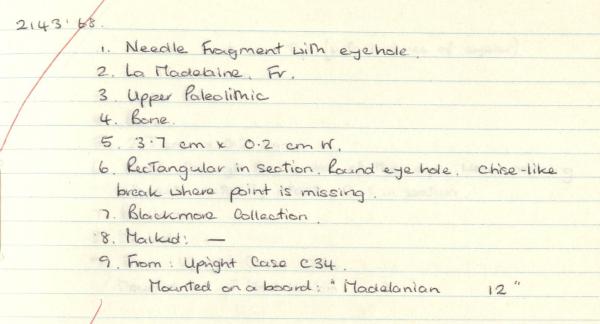 2143.68.
1. Needle Fragment with eyehole.
2. La Madelaine, Fr.
3. Upper Paleolithic
4. Bone.
5. 3.7 cm x 0.2 cm W.
6. Rectangular in section. Round eye hole. Chise-like
break where point is missing.
7. Blackmore Collection.
8. Marked: —
9. From: Upright Case C34.
Mounted on a board: "Madelanian 12"